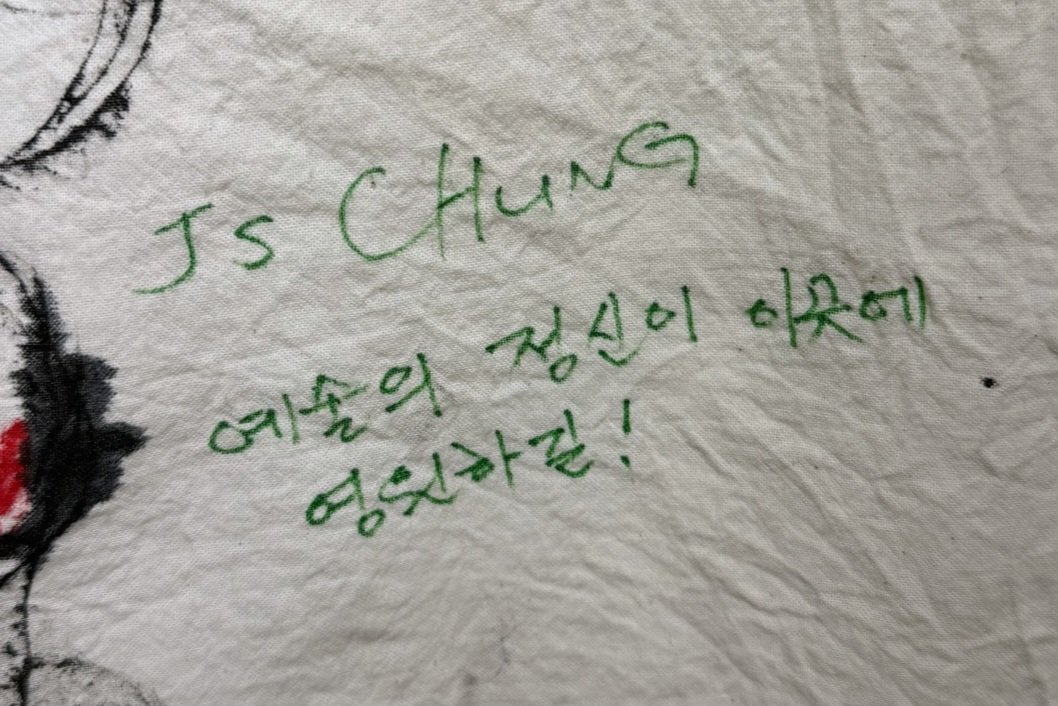 JS CHUNG
예술의 정신이 이곳에
영원하길!